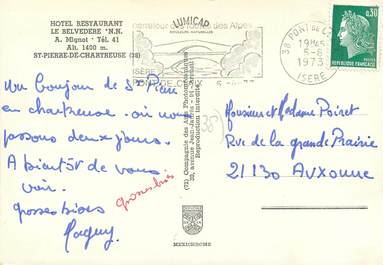 HOTEL RESTAURANT
LE BELVEDERE *N.N.
A. Mignot - Tél. 41
Alt. 1400 m.
ST-PIERRE-DE-CHARTREUSE (38)
LUMICAP
COULEURS NATURELLES
carrefour des routes des Alpes
ISERE
38 PONT DE C
19H45
5-8
1973
ISERE
0,30
REPUBLIQUE FRANÇAISE
Un bonjour de St Pierre
en chartreuse où nous
passons deux jours.
A bientôt de vous
voir.
grosses bises
Maguy
grosses bises
(72) Compagnie des Arts Photomécaniques
Reproduction interdite
MEXICHROME
Monsieur et Madame Poiret
Rue de la grande Prairie
21130 AUXONNE